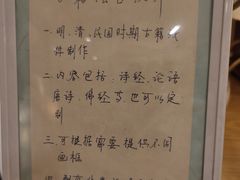 一、明、清、民国时期古籍线
件制作
二、内容包括：诗经、论语
唐诗、佛经等，也可以定
制
三、可根据需要提供不同
画框